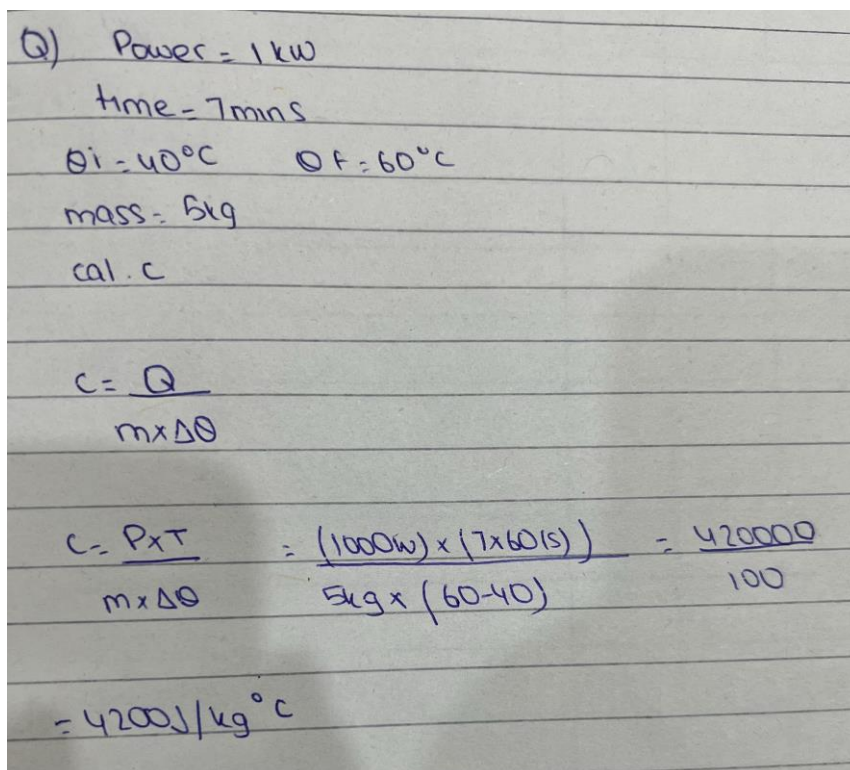 Q) Power = 1 kw
time = 7mins
θi = 40°C θf = 60°C
mass = 5kg
cal. c
c = Q / m×Δθ
c = P×T / m×Δθ = (1000w) × (7×60(s)) / 5kg × (60-40) = 420000 / 100
= 4200J/kg°C